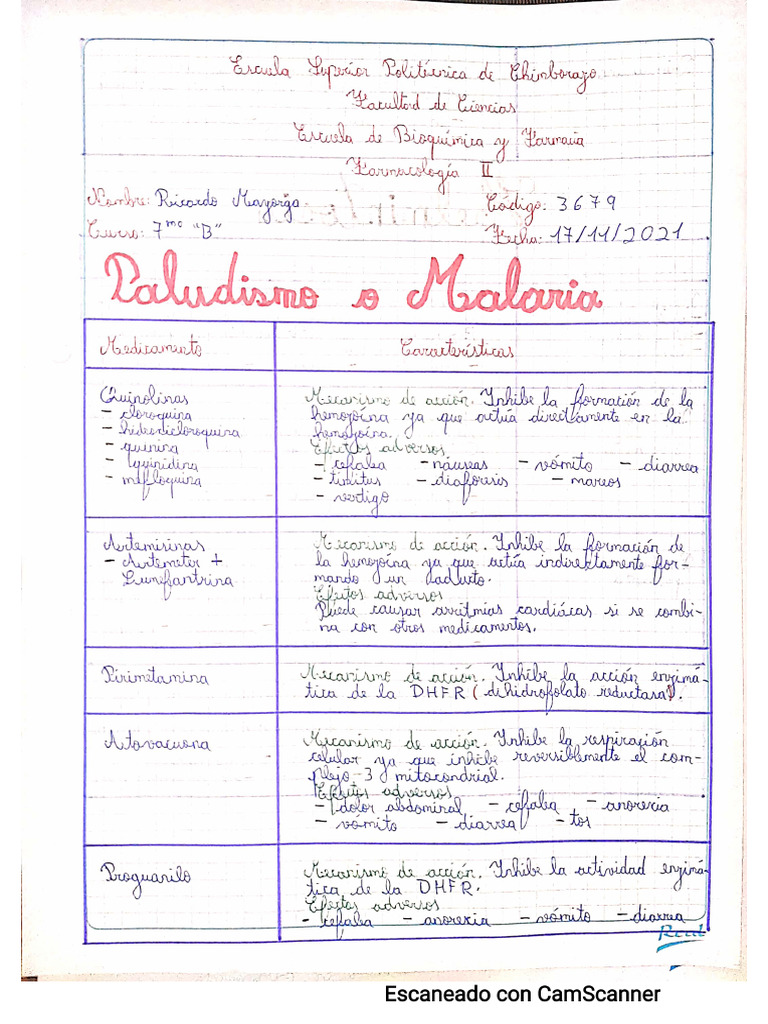 Escuela Superior Politécnica de Chimborazo
Facultad de Ciencias
Escuela de Bioquímica y Farmacia
Farmacología II
Nombre: Ricardo Mayorga
Código: 3679
Curso: 7mo "B"
Fecha: 17/11/2021
Paludismo o Malaria
Medicamento
Características
Quinolinas
- cloroquina
- hidroxicloroquina
- quinina
- quinidina
- mefloquina
Mecanismo de acción. Inhibe la formación de la
hemozoína ya que actúa directamente en la
hemozoína.
Efectos adversos
- cefalea - náuseas - vómito - diarrea
- tinitus - diaforesis - mareos
- vertigo
Artemisinas
- Artemeter +
Lumefantrina
Mecanismo de acción. Inhibe la formación de
la hemozoína ya que actúa indirectamente for-
mando un aducto.
Efectos adversos
Puede causar arritmias cardiácas si se combi-
na con otros medicamentos.
Pirimetamina
Mecanismo de acción. Inhibe la acción enzimá-
tica de la DHFR (dihidrofolato reductasa).
Atovacuona
Mecanismo de acción. Inhibe la respiración
celular ya que inhibe reversiblemente el com-
plejo-3 mitocondrial.
Efectos adversos
- dolor abdominal - cefalea - anorexia
- vómito - diarrea - tos
Proguanilo
Mecanismo de acción. Inhibe la actividad enzimá-
tica de la DHFR.
Efectos adversos
- cefalea - anorexia - vómito - diarrea
Escaneado con CamScanner